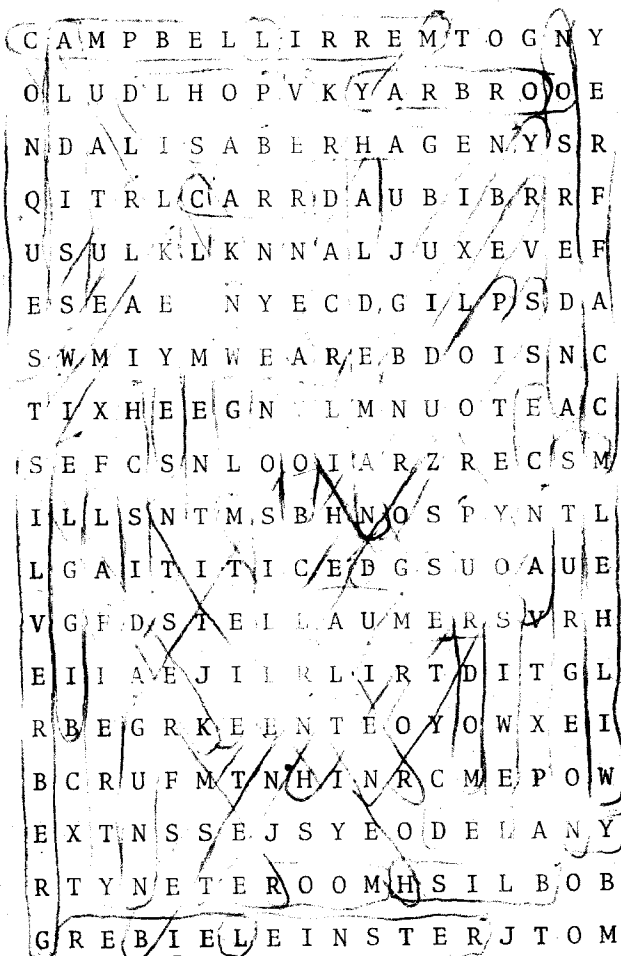 C A M P B E L L I R R E M T O G N Y
O L U D L H O P V K Y A R B R O O E
N D A L I S A B E R H A G E N Y S R
Q I T R L C A R R D A U B I B R R F
U S U L K L K N N A L J U X E V E F
E S E A E N Y E C D G I L P S D A
S W M I Y M W E A R E B D O I S N C
T I X H E E G N L M N U O T E A C
S E F C S N L O O I A R Z R E C S M
I L L S N T M S B H N O S P Y N T L
L G A I T I T I C E D G S U O A U E
V G F D S T E L L A U M E R S V R H
E I I A E J I L R L I R T D I T G L
R B E G R K E E N T E O Y O W X E I
B C R U F M T N H I N R C M E P O W
E X T N S S E J S Y E O D E L A N Y
R T Y N E T E R O O M H S I L B O B
G R E B I E L E I N S T E R J T O M